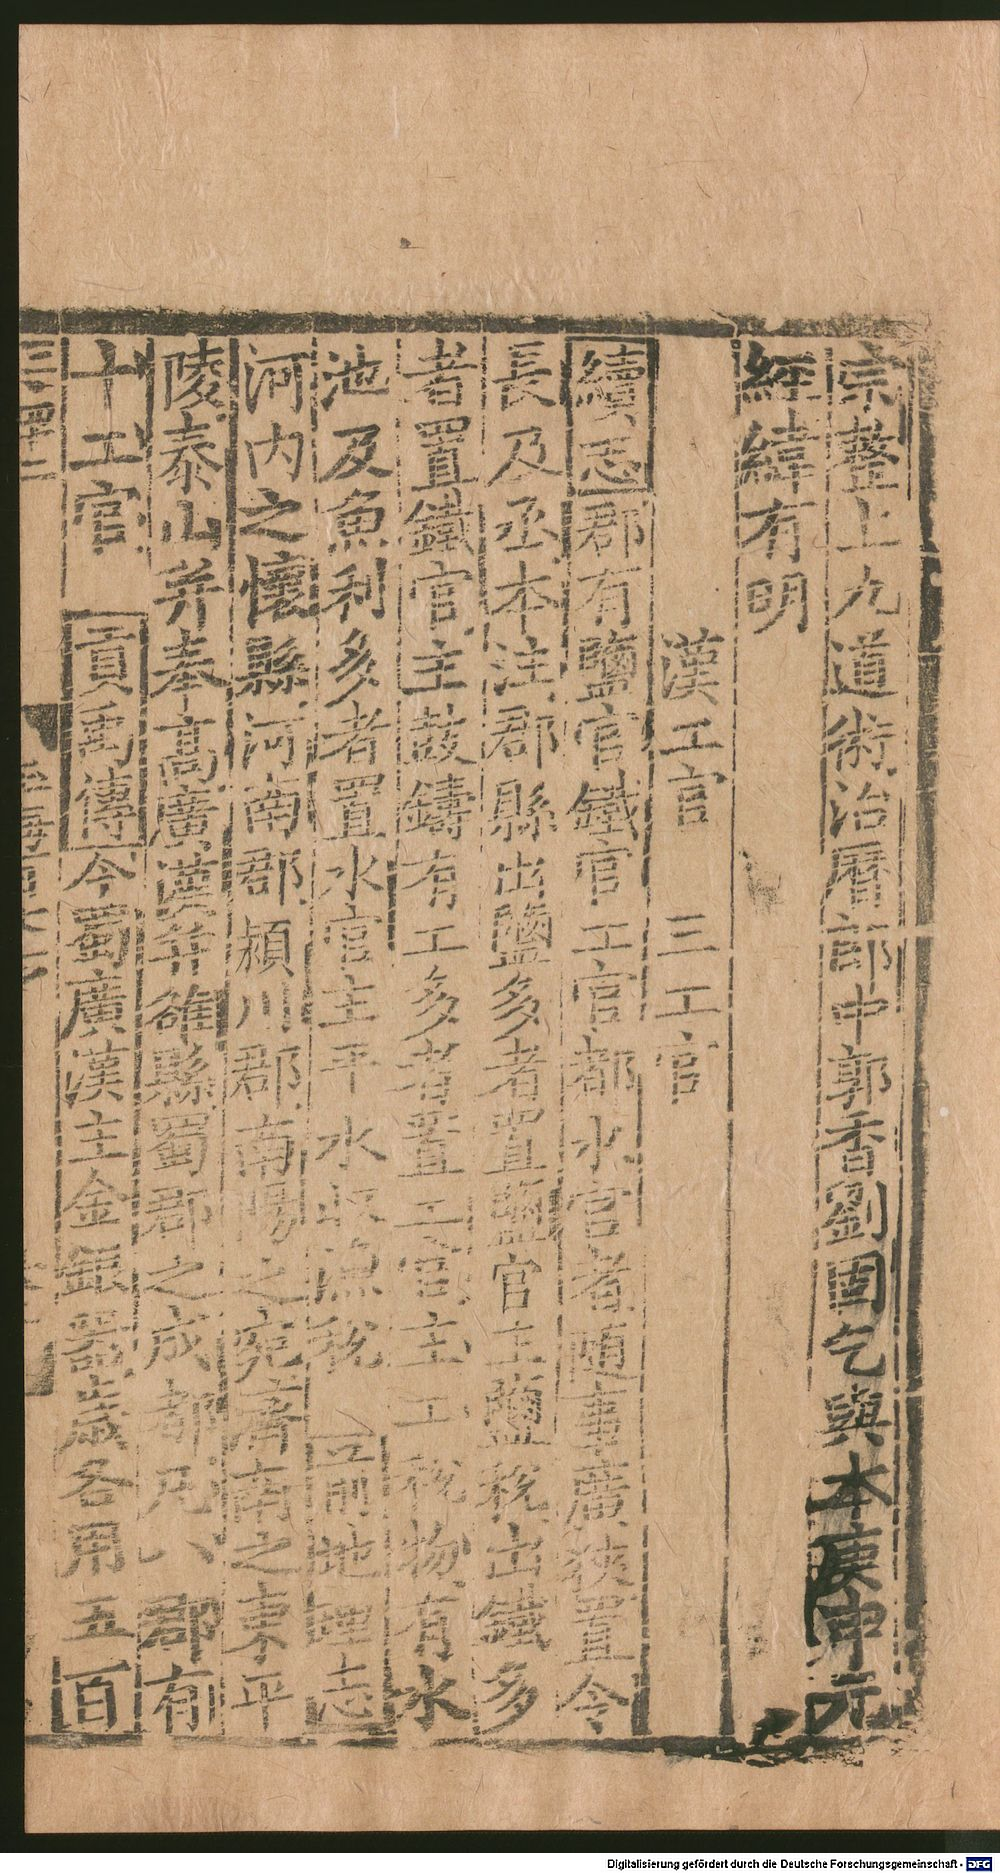 宗整上九道術治曆郎中郭香劉固乞與本庚申元
經緯有明
漢工官 三工官
續志郡有鹽官鐵官工官都水官者隨事廣狹置令
長及丞本注郡縣出鹽多者置鹽官主鹽稅出鐵多
者置鐵官主鼓鑄有工多者置工官主工稅物有水
池及魚利多者置水官主平水收漁稅 前地理志
河內之懷縣河南郡潁川郡南陽之宛濟南之東平
陵泰山并奉高廣漢并雒縣蜀郡之成都凡八郡有
十工官 貢禹傳今蜀廣漢主金銀器歲各用五百
Digitalisierung gefördert durch die Deutsche Forschungsgemeinschaft - DFG